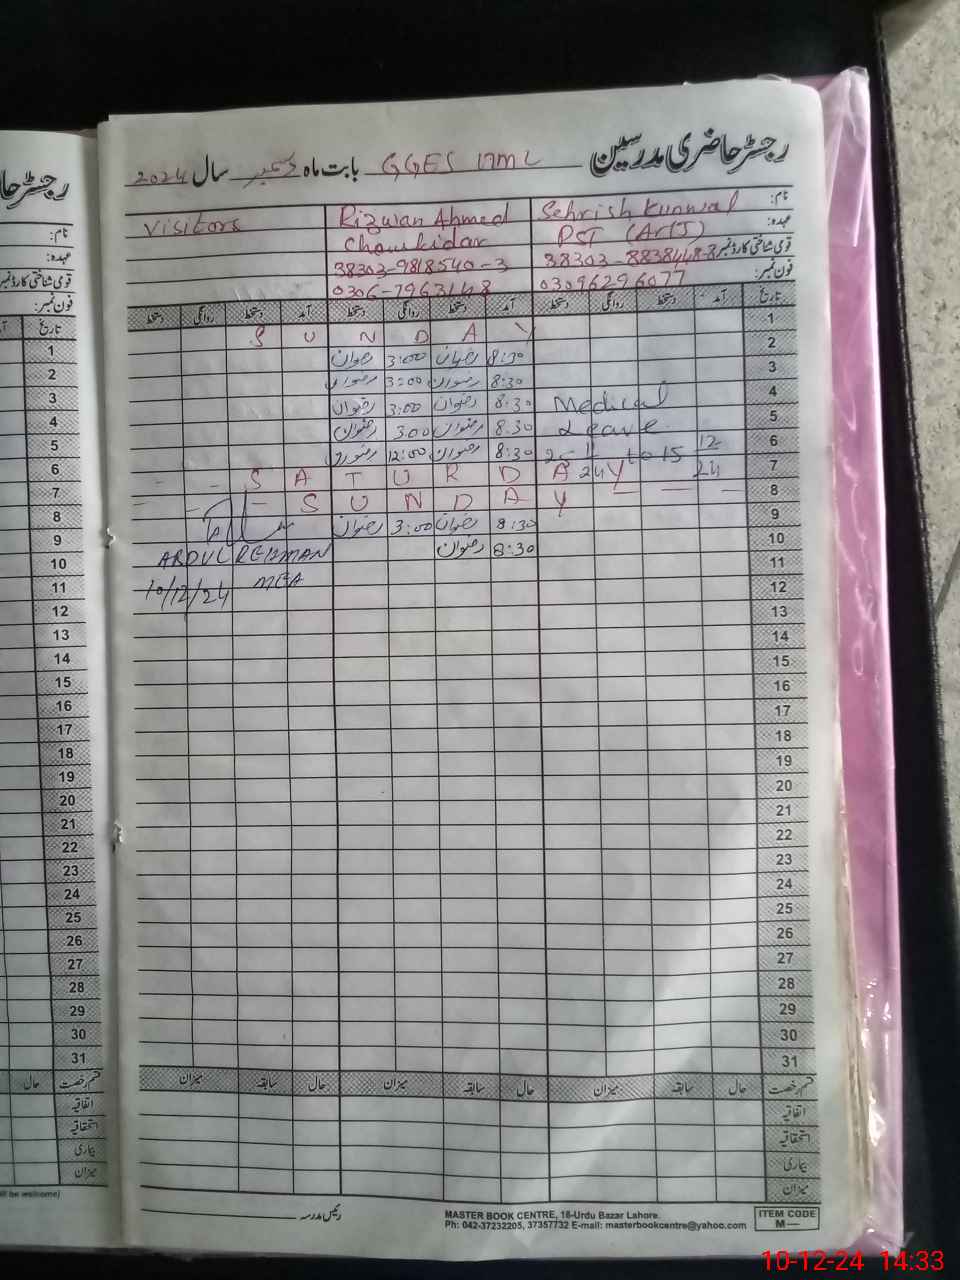 رجسٹر حاضری مدرسین GGES 17ML بابت ماہ دسمبر سال 2024
نام: Sehrish Kunwal Rizwan Ahmed Visitors
عہدہ: PST (Arts) Chowkidar
قومی شناختی کارڈ نمبر: 38303-8838448-8 38303-9818540-3
فون نمبر: 03096296077 0306-7963148
تاریخ آمد دستخط روانگی دستخط آمد دستخط روانگی دستخط آمد دستخط روانگی دستخط
1 S U N D A Y
2 8:30 رضوان 3:00 رضوان
3 8:30 رضوان 3:00 رضوان
4 Medical 8:30 رضوان 3:00 رضوان
5 Leave 8:30 رضوان 3:00 رضوان
6 to 15 12/24 8:30 رضوان 12:00 رضوان
7 S A T U R D A Y
8 S U N D A Y
9 8:30 رضوان 3:00 رضوان
10 8:30 رضوان ABDUL REHMAN
11 MEA 10/12/24
12
13
14
15
16
17
18
19
20
21
22
23
24
25
26
27
28
29
30
31
قسم رخصت حال سابقہ میزان حال سابقہ میزان حال سابقہ میزان
اتفاقیہ
استحقاقیہ
بیماری
میزان
رئیس مدرسہ
MASTER BOOK CENTRE, 16-Urdu Bazar Lahore.
Ph: 042-37232205, 37357732 E-mail: masterbookcentre@yahoo.com
ITEM CODE
M—
رجسٹر حا
نام:
عہدہ:
قومی شناختی کارڈ نمبر
فون نمبر:
تاریخ
1
2
3
4
5
6
7
8
9
10
11
12
13
14
15
16
17
18
19
20
21
22
23
24
25
26
27
28
29
30
31
قسم رخصت حال
اتفاقیہ
استحقاقیہ
بیماری
میزان
ll be welcome)
10-12-24 14:33